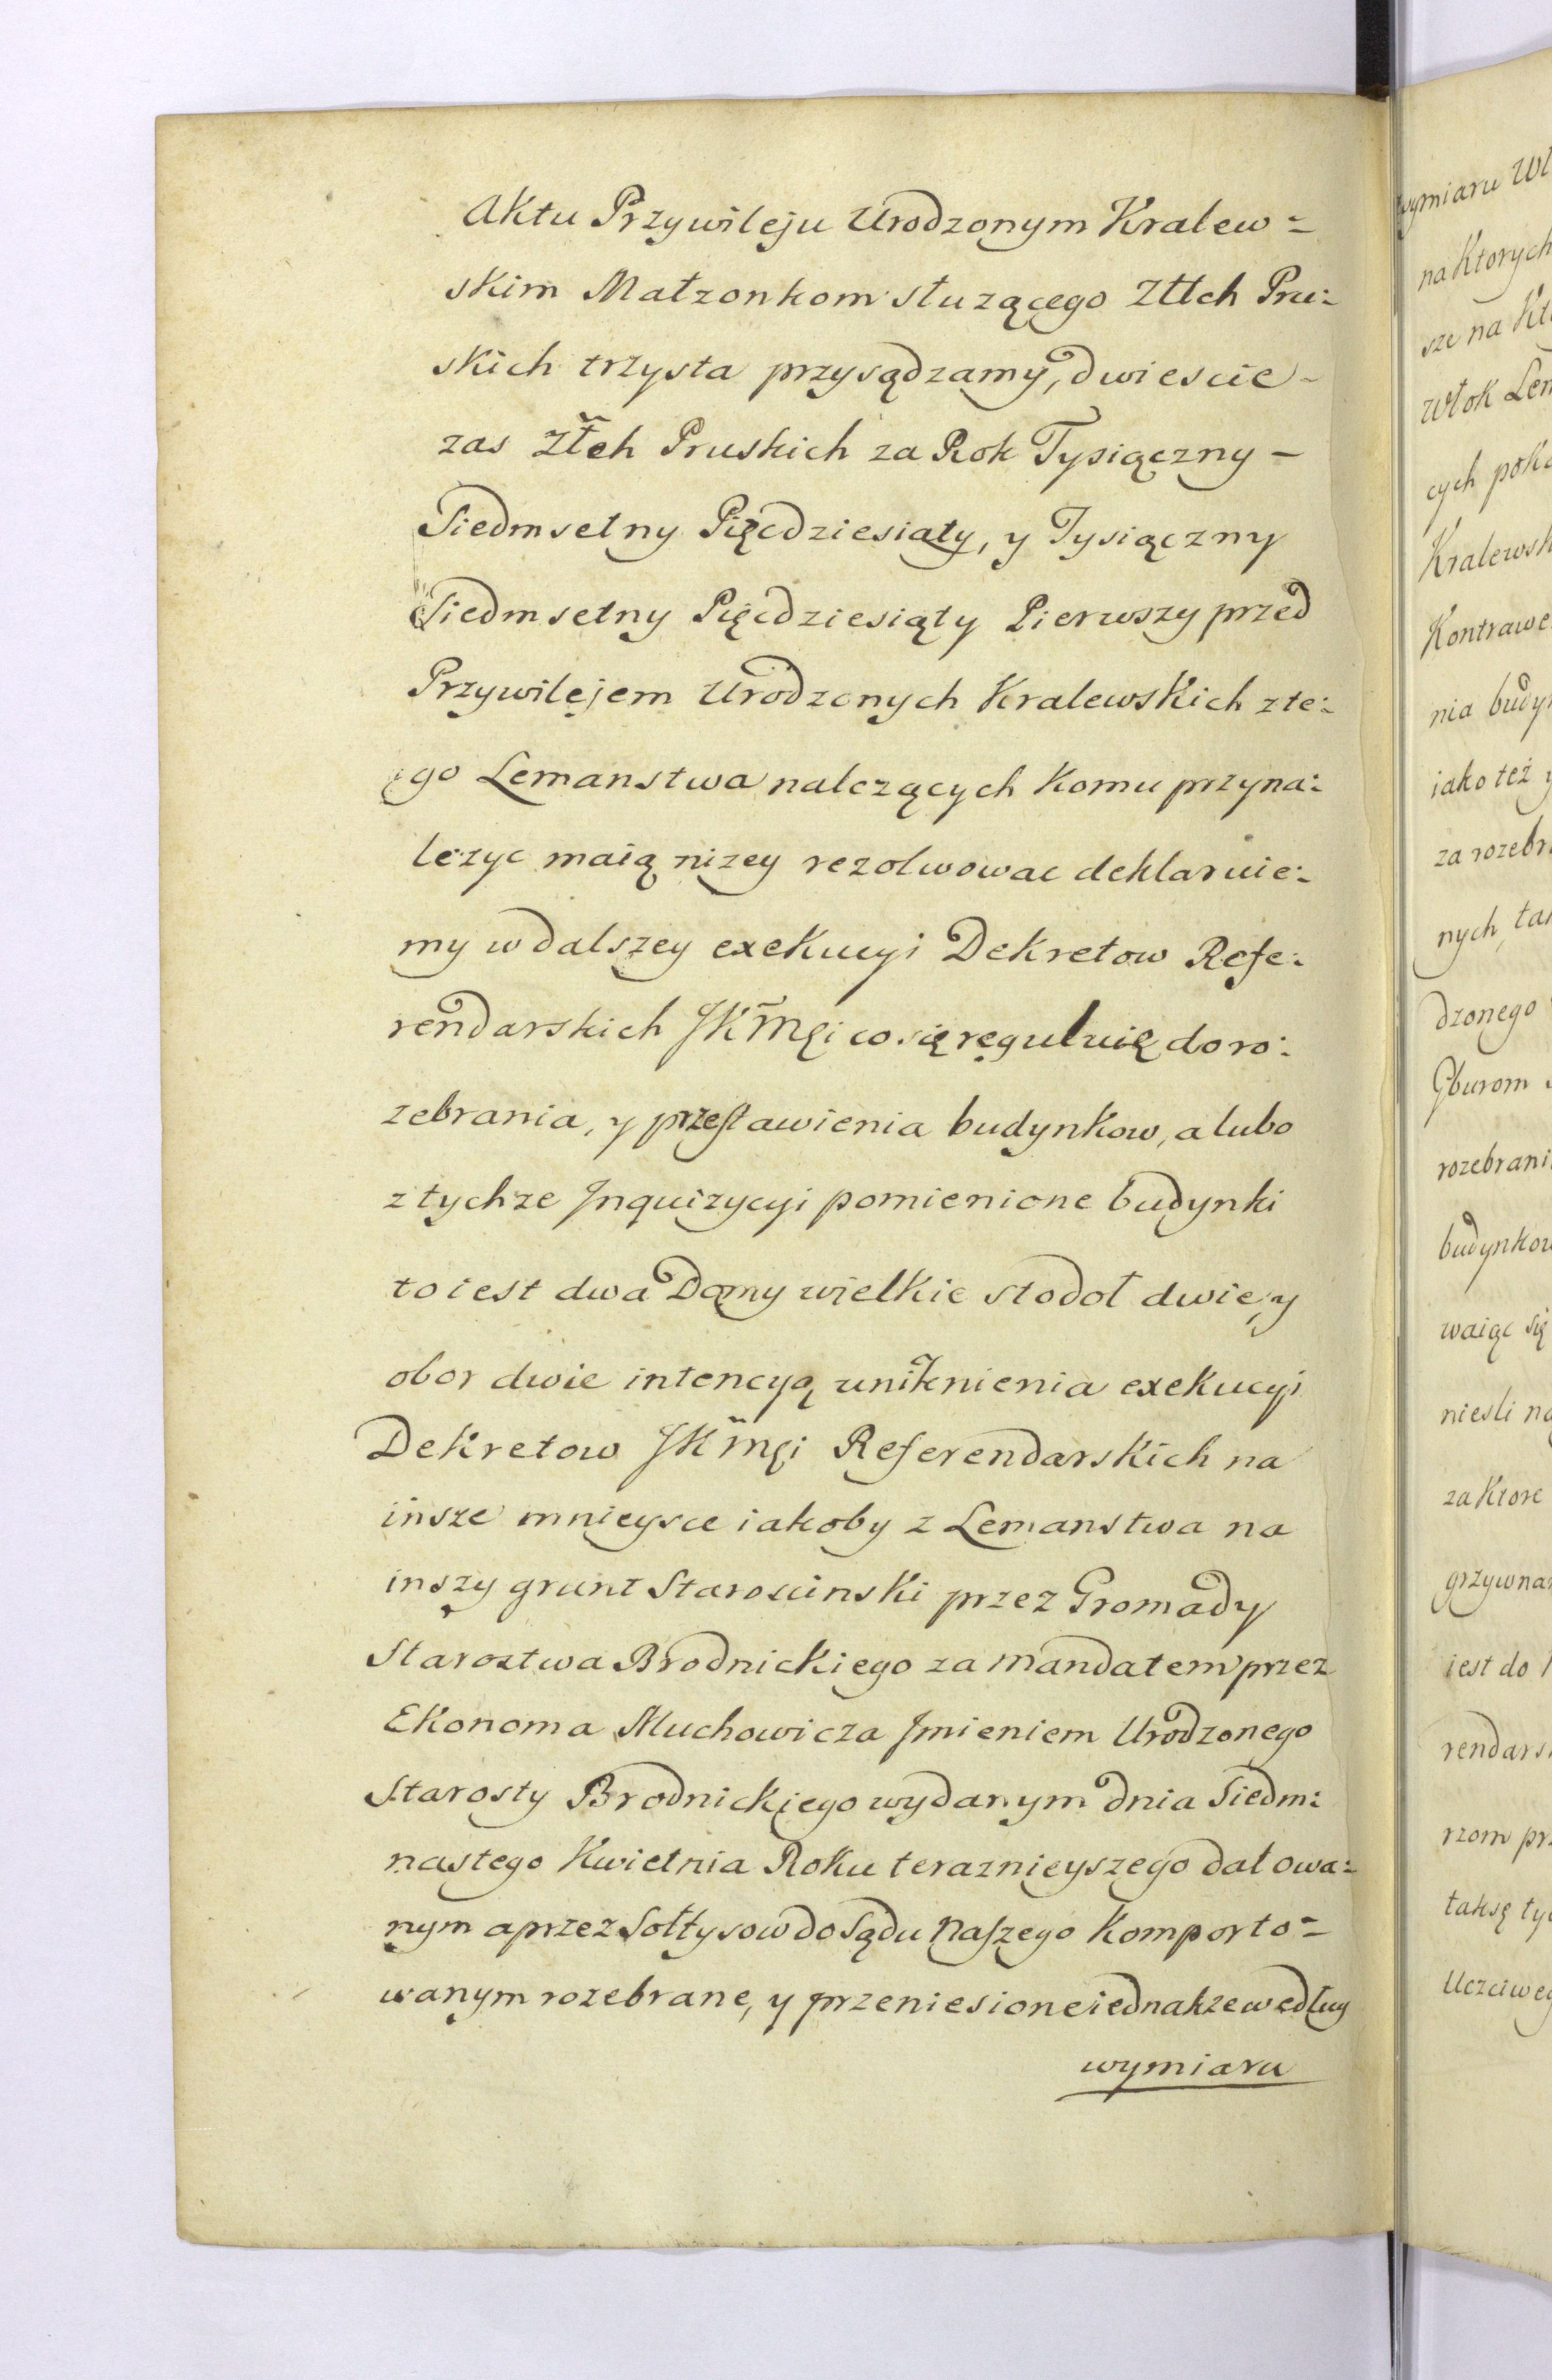 Aktu Przywileju Urodzonym Kralew=
skim Małzonkom słuzącego Złtch Pru:
skich trzysta przysądzamy, dwiescie-
zas Złch Pruskich za Rok Tysiączny -
Siedmsetny Pięcdziesiąty, y Tysiączny
Siedmsetny Pięcdziesiąty Pierwszy przed
Przywilejem Urodzonych Kralewskich z te:
go Lemanstwa nalezących komu przyna:
lezyc maią nizey rezolwowac deklaruie:
my w dalszey exekucyi Dekretow Refe:
rendarskich JKMęi co się reguluię do ro:
zebrania, y przestawienia budynkow, a lubo
z tychze Inquizycyi pomienione budynki
to iest dwa Domy wielkie stodoł dwie, y
obor dwie intencyą uniknienia exekucyi
Dekretow JKMęi Referendarskich na
insze mnieysce iakoby z Lemanstwa na
inszy grunt Staroscinski przez Gromady
Starostwa Brodnickiego za mandatem przez
Ekonoma Muchowicza Imieniem Urodzonego
Starosty Brodnickiego wydanym dnia Siedm:
nastego Kwietnia Roku teraznieyszego datowa:
nym a przez Sołtysow do Sądu Naszego komporto=
wanym rozebrane, y przeniesione iednakze według
wymiaru
wymiaru
na Ktorych
sze na
Włok
cych
nia
iako też
za rozebr
nych
dzonego
Gburom
rozebrani
waiąc się
niesli
za Ktore
iest do
rzom
taksę